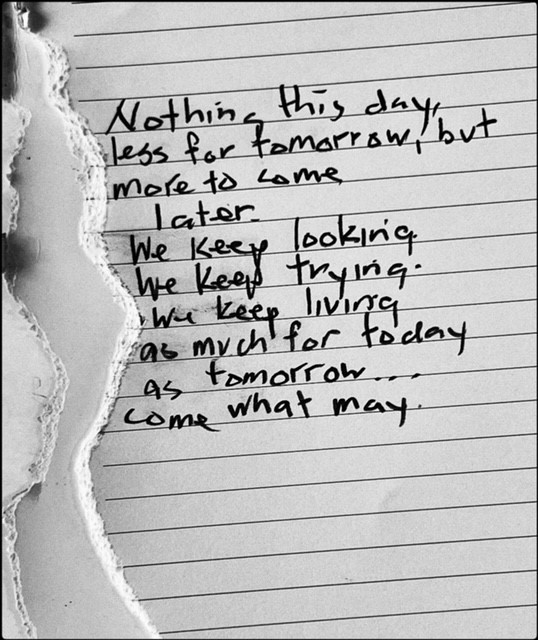 Nothing this day,
less for tomorrow, but
more to come
later.
We keep looking
We keep trying.
We keep living
as much for today
as tomorrow...
come what may.